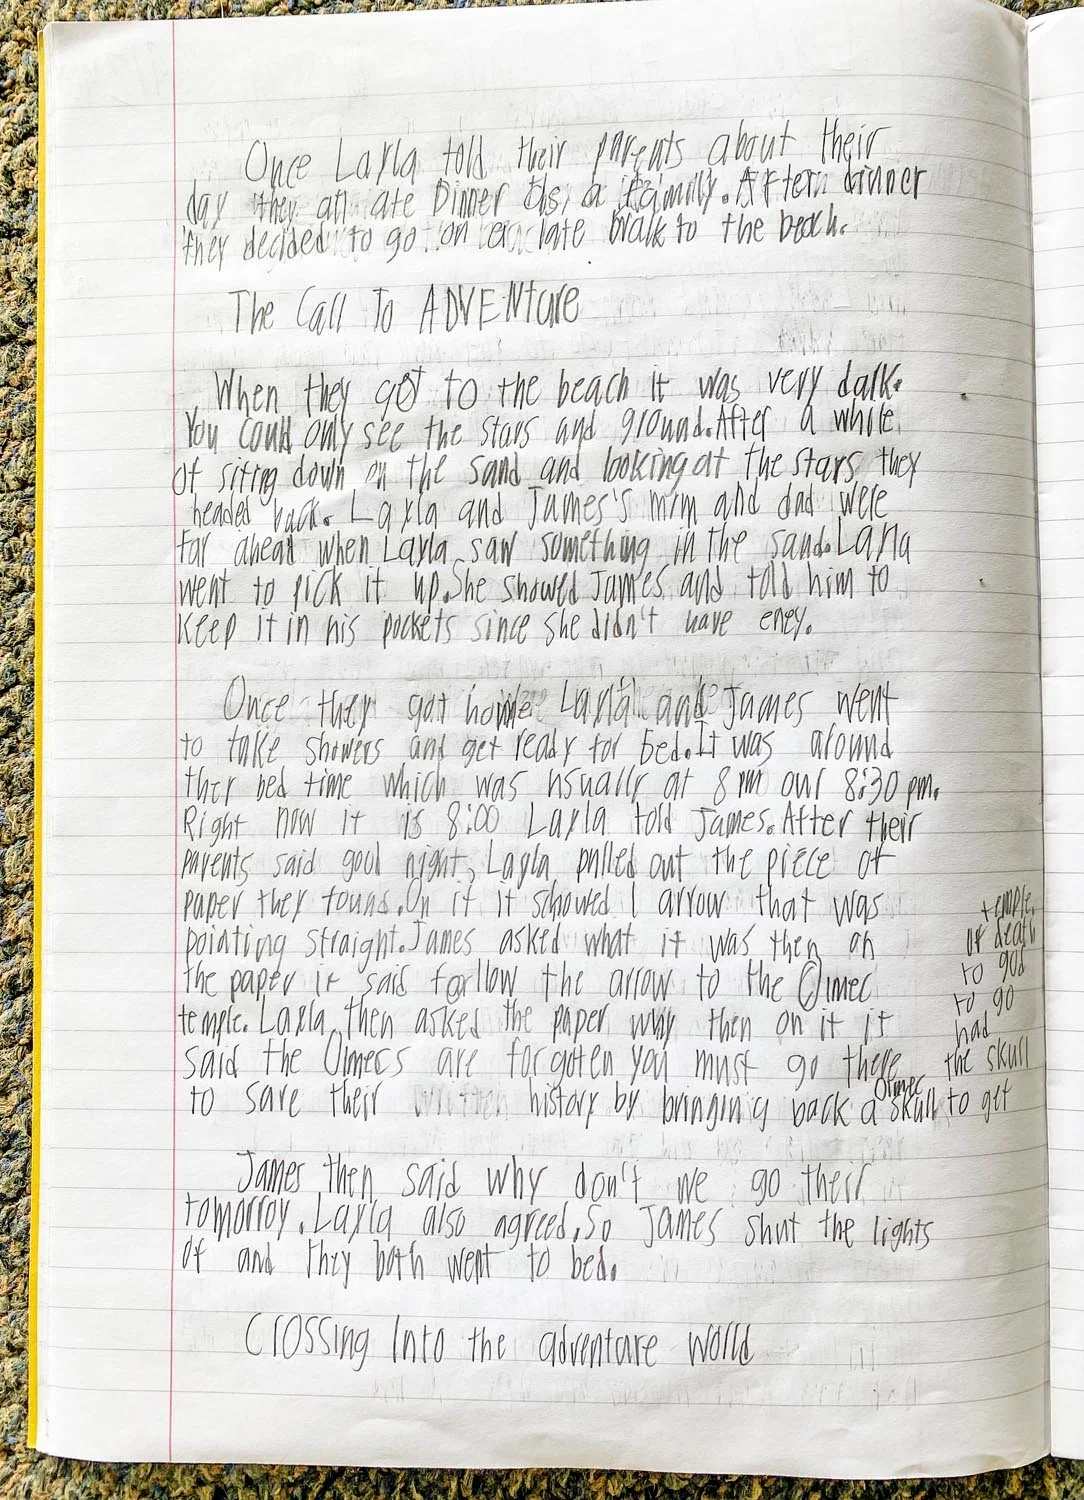 Once Layla told their parents about their
day they all ate Dinner as a family. Aftern dinner
they decided to go on a late walk to the beach.
The Call To ADVENture
When they got to the beach it was very dalk.
You could only see the stars and ground. After a while
of siting down on the sand and looking at the stars they
headed back. Layla and James's mom and dad were
far ahead when Layla saw something in the sand. Layla
went to pick it up. She showed James and told him to
keep it in his pockets since she didn't have eney.
Once they got home Layla and James went
to take showers and get ready for bed. It was around
ther bed time which was usually at 8 pm our 8:30 pm.
Right now it is 8:00 Layla told James. After their
parents said good night, Layla pulled out the piece of
paper they found. On it it schowed 1 arrow that was
pointing straight. James asked what it was then on
the paper it said follow the arrow to the Olmec
temple. Layla then asked the paper why then on it it
said the Olmecs are forgotten you must go there
to save their written history by bringing back a Olmec skull to get
the skull
had
to go
to god
of death
temple.
James then said why don't we go their
tomorroy. Layla also agreed. So James shut the lights
of and they both went to bed.
Crossing Into the adventure world